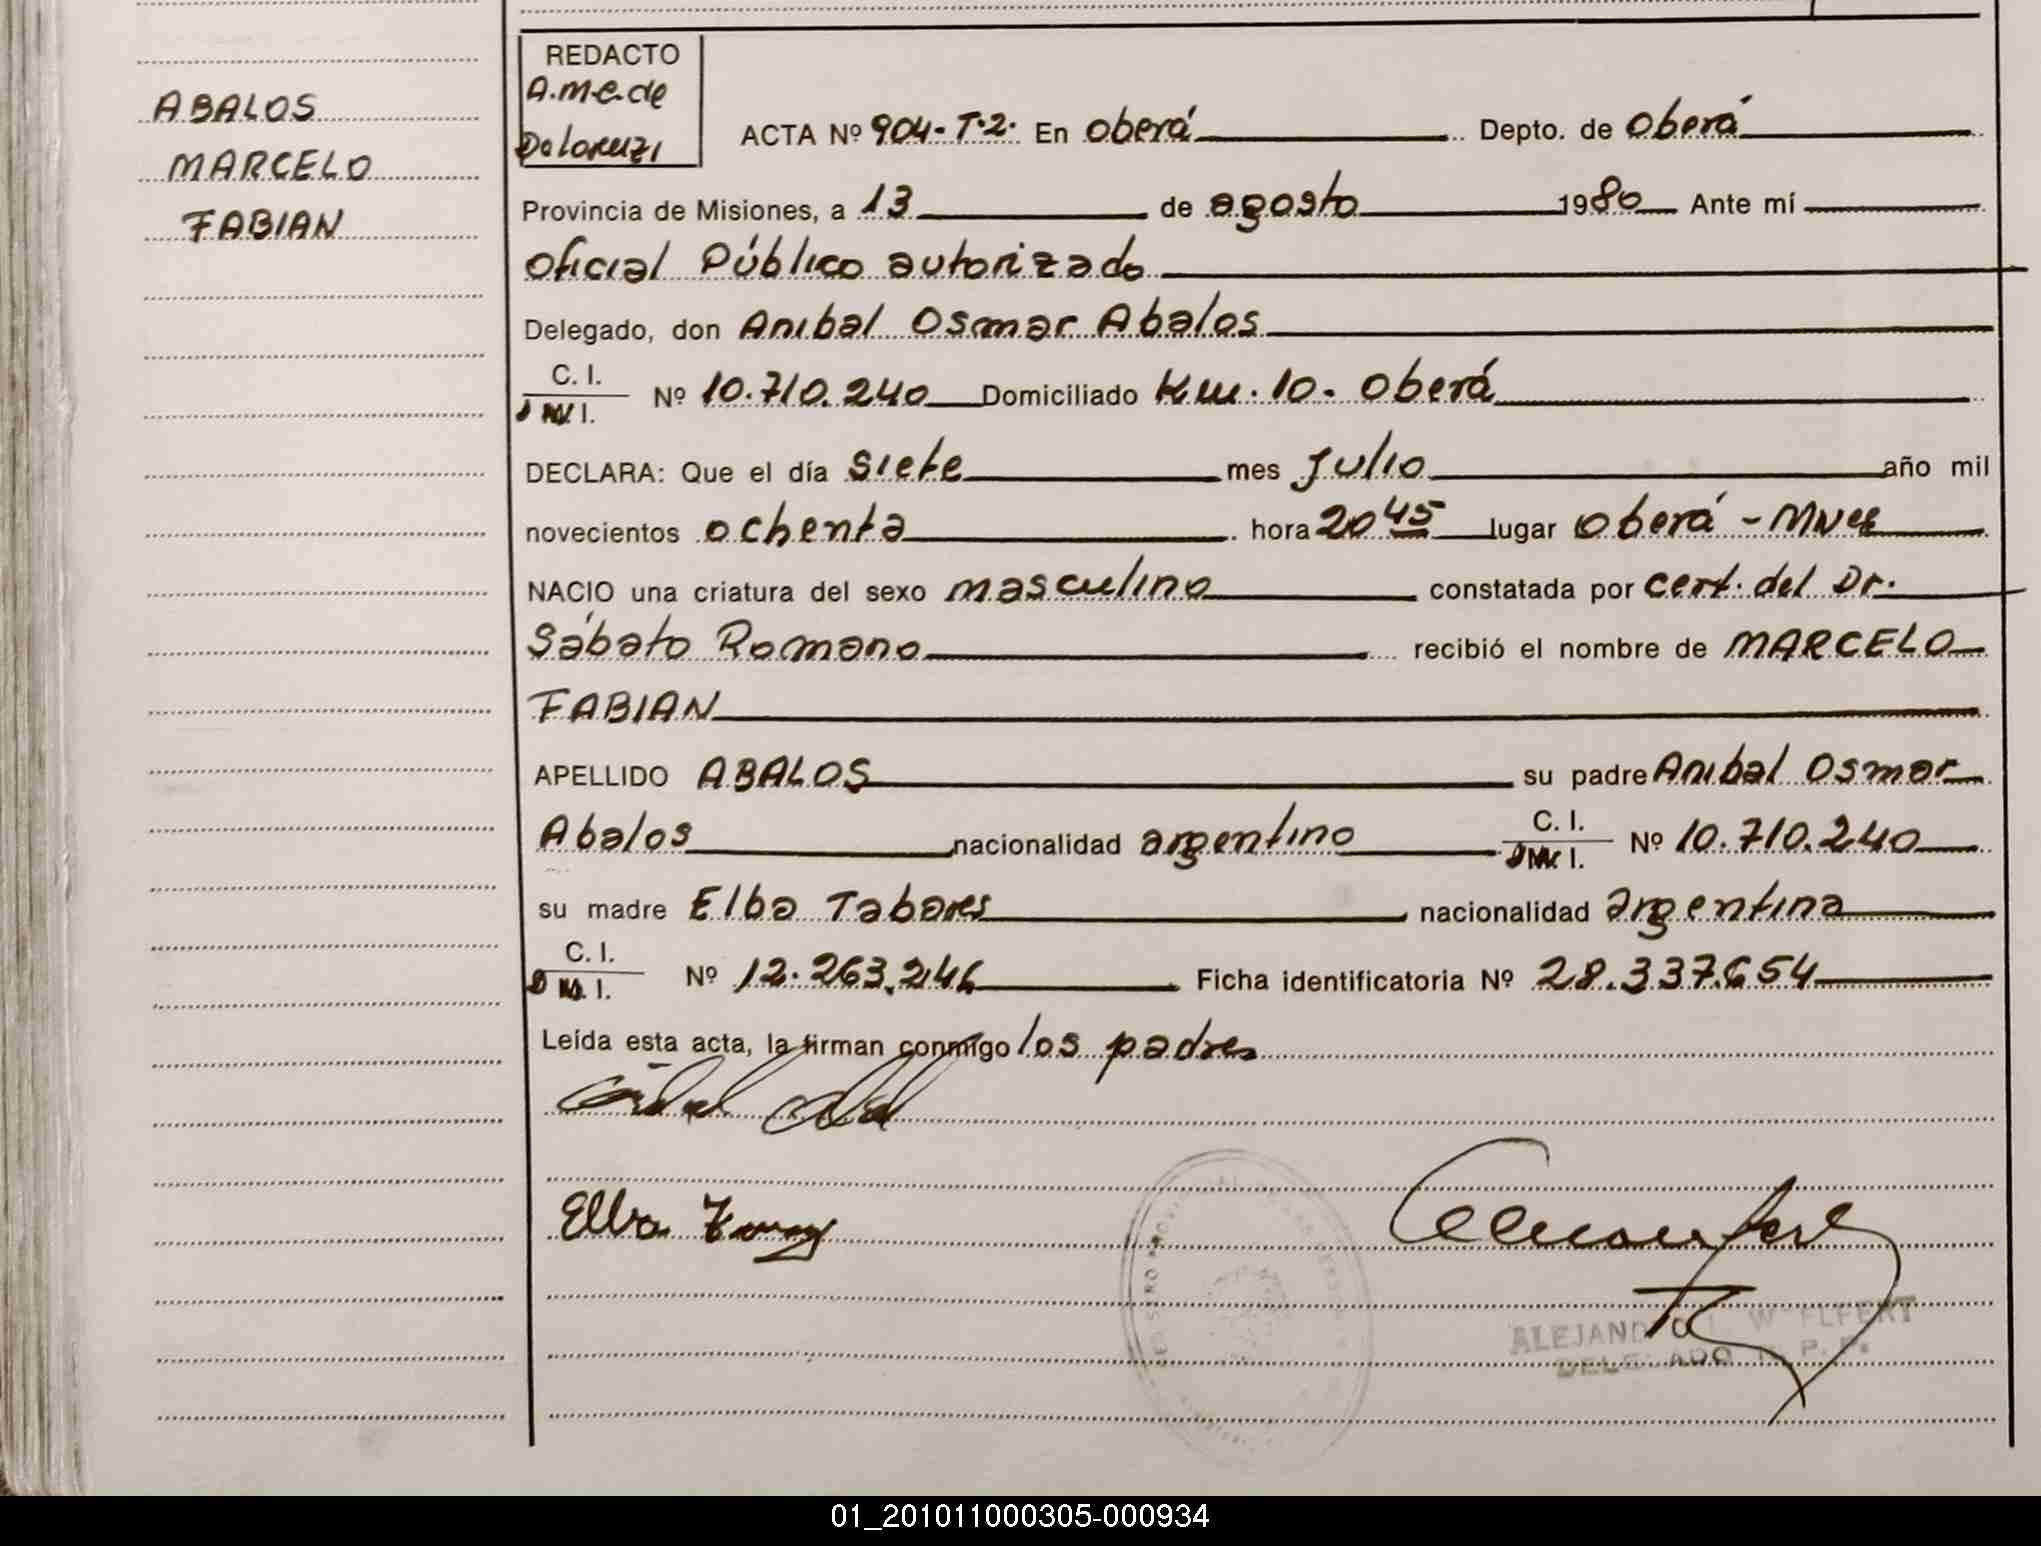 ABALOS
MARCELO
FABIAN
REDACTO
A.M.C. de
ACTA Nº 904-T.2. En Oberá Depto. de Oberá
Provincia de Misiones, a 13 de agosto 1980 Ante mí
Oficial Público autorizado
Delegado, don Anibal Osmar Abalos
C. I.
I. Nº 10.710.240 Domiciliado Km. 10. Oberá
DECLARA: Que el día siete mes Julio año mil
novecientos ochenta hora 20 45 lugar Oberá - Mnes
NACIO una criatura del sexo masculino constatada por cert. del Dr.
Sábato Romano recibió el nombre de MARCELO
FABIAN
APELLIDO ABALOS su padre Anibal Osmar
Abalos nacionalidad argentino C. I. I. Nº 10.710.240
su madre Elba Tabares nacionalidad argentina
C. I.
I. Nº 12.263.246 Ficha identificatoria Nº 28.337.654
Leída esta acta, la firman conmigo los padres
Elba
ALEJAND
DELEGADO R. P. P.
01_201011000305-000934